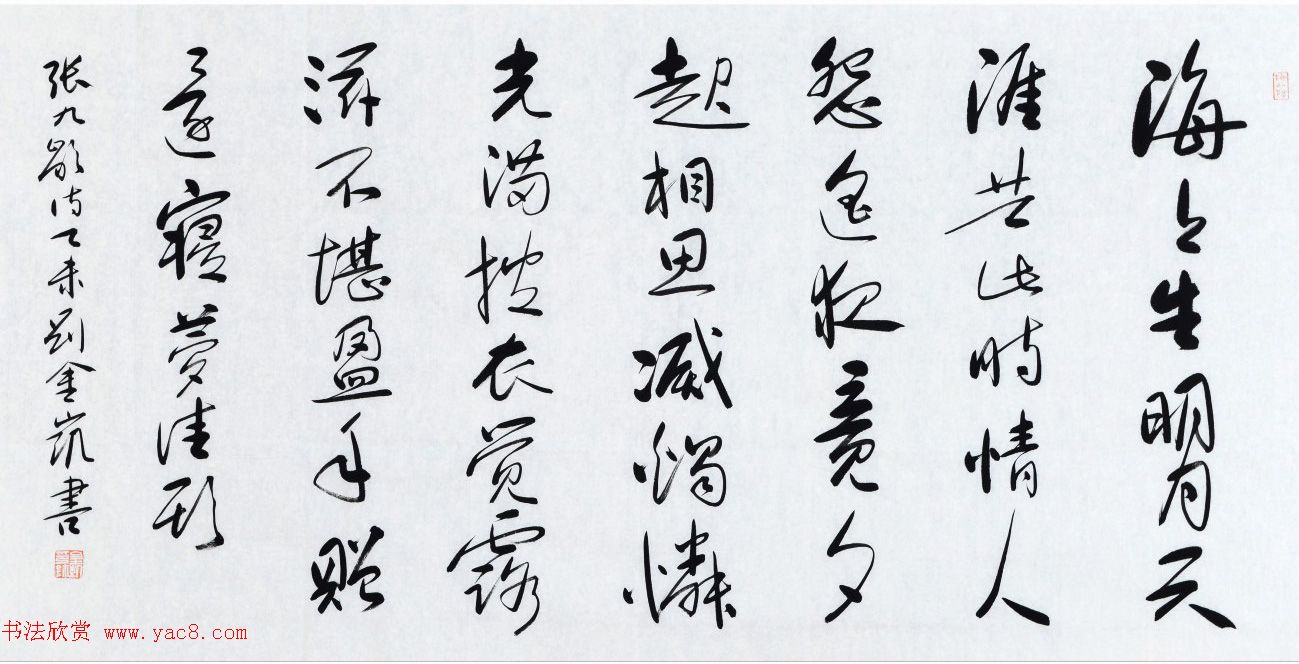 海上生明月天
涯共此時情人
怨遥夜竟夕
起相思滅燭憐
光满披衣觉露
滋不堪盈手贈
還寝夢佳期
张九龄诗乙未刘金凯書
书法欣赏 www.yac8.com